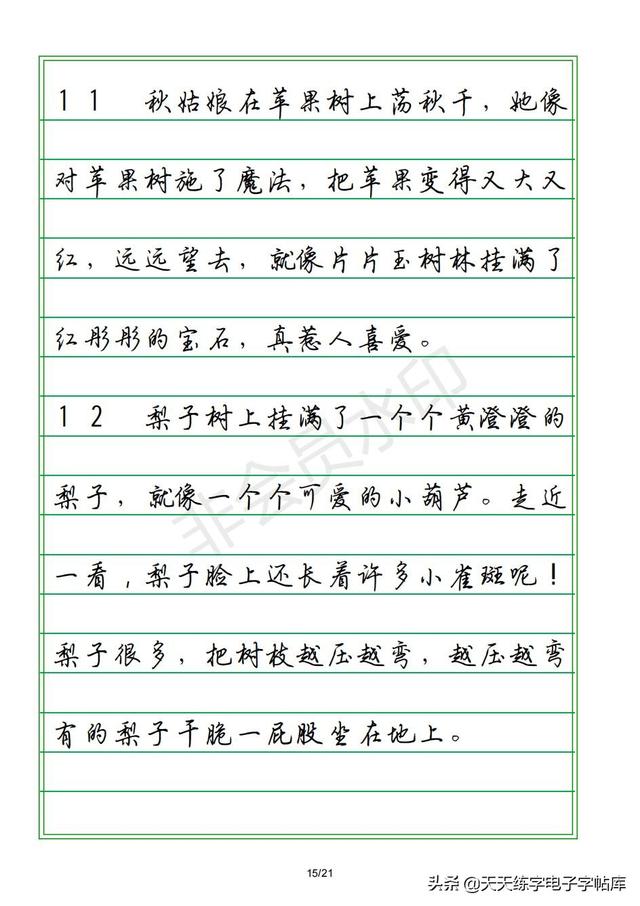 11 秋姑娘在苹果树上荡秋千，她像
对苹果树施了魔法，把苹果变得又大又
红，远远望去，就像片片玉树林挂满了
红彤彤的宝石，真惹人喜爱。
12 梨子树上挂满了一个个黄澄澄的
梨子，就像一个个可爱的小葫芦。走近
一看，梨子脸上还长着许多小雀斑呢！
梨子很多，把树枝越压越弯，越压越弯
有的梨子干脆一屁股坐在地上。
非会员水印
15/21
头条 @天天练字电子字帖库